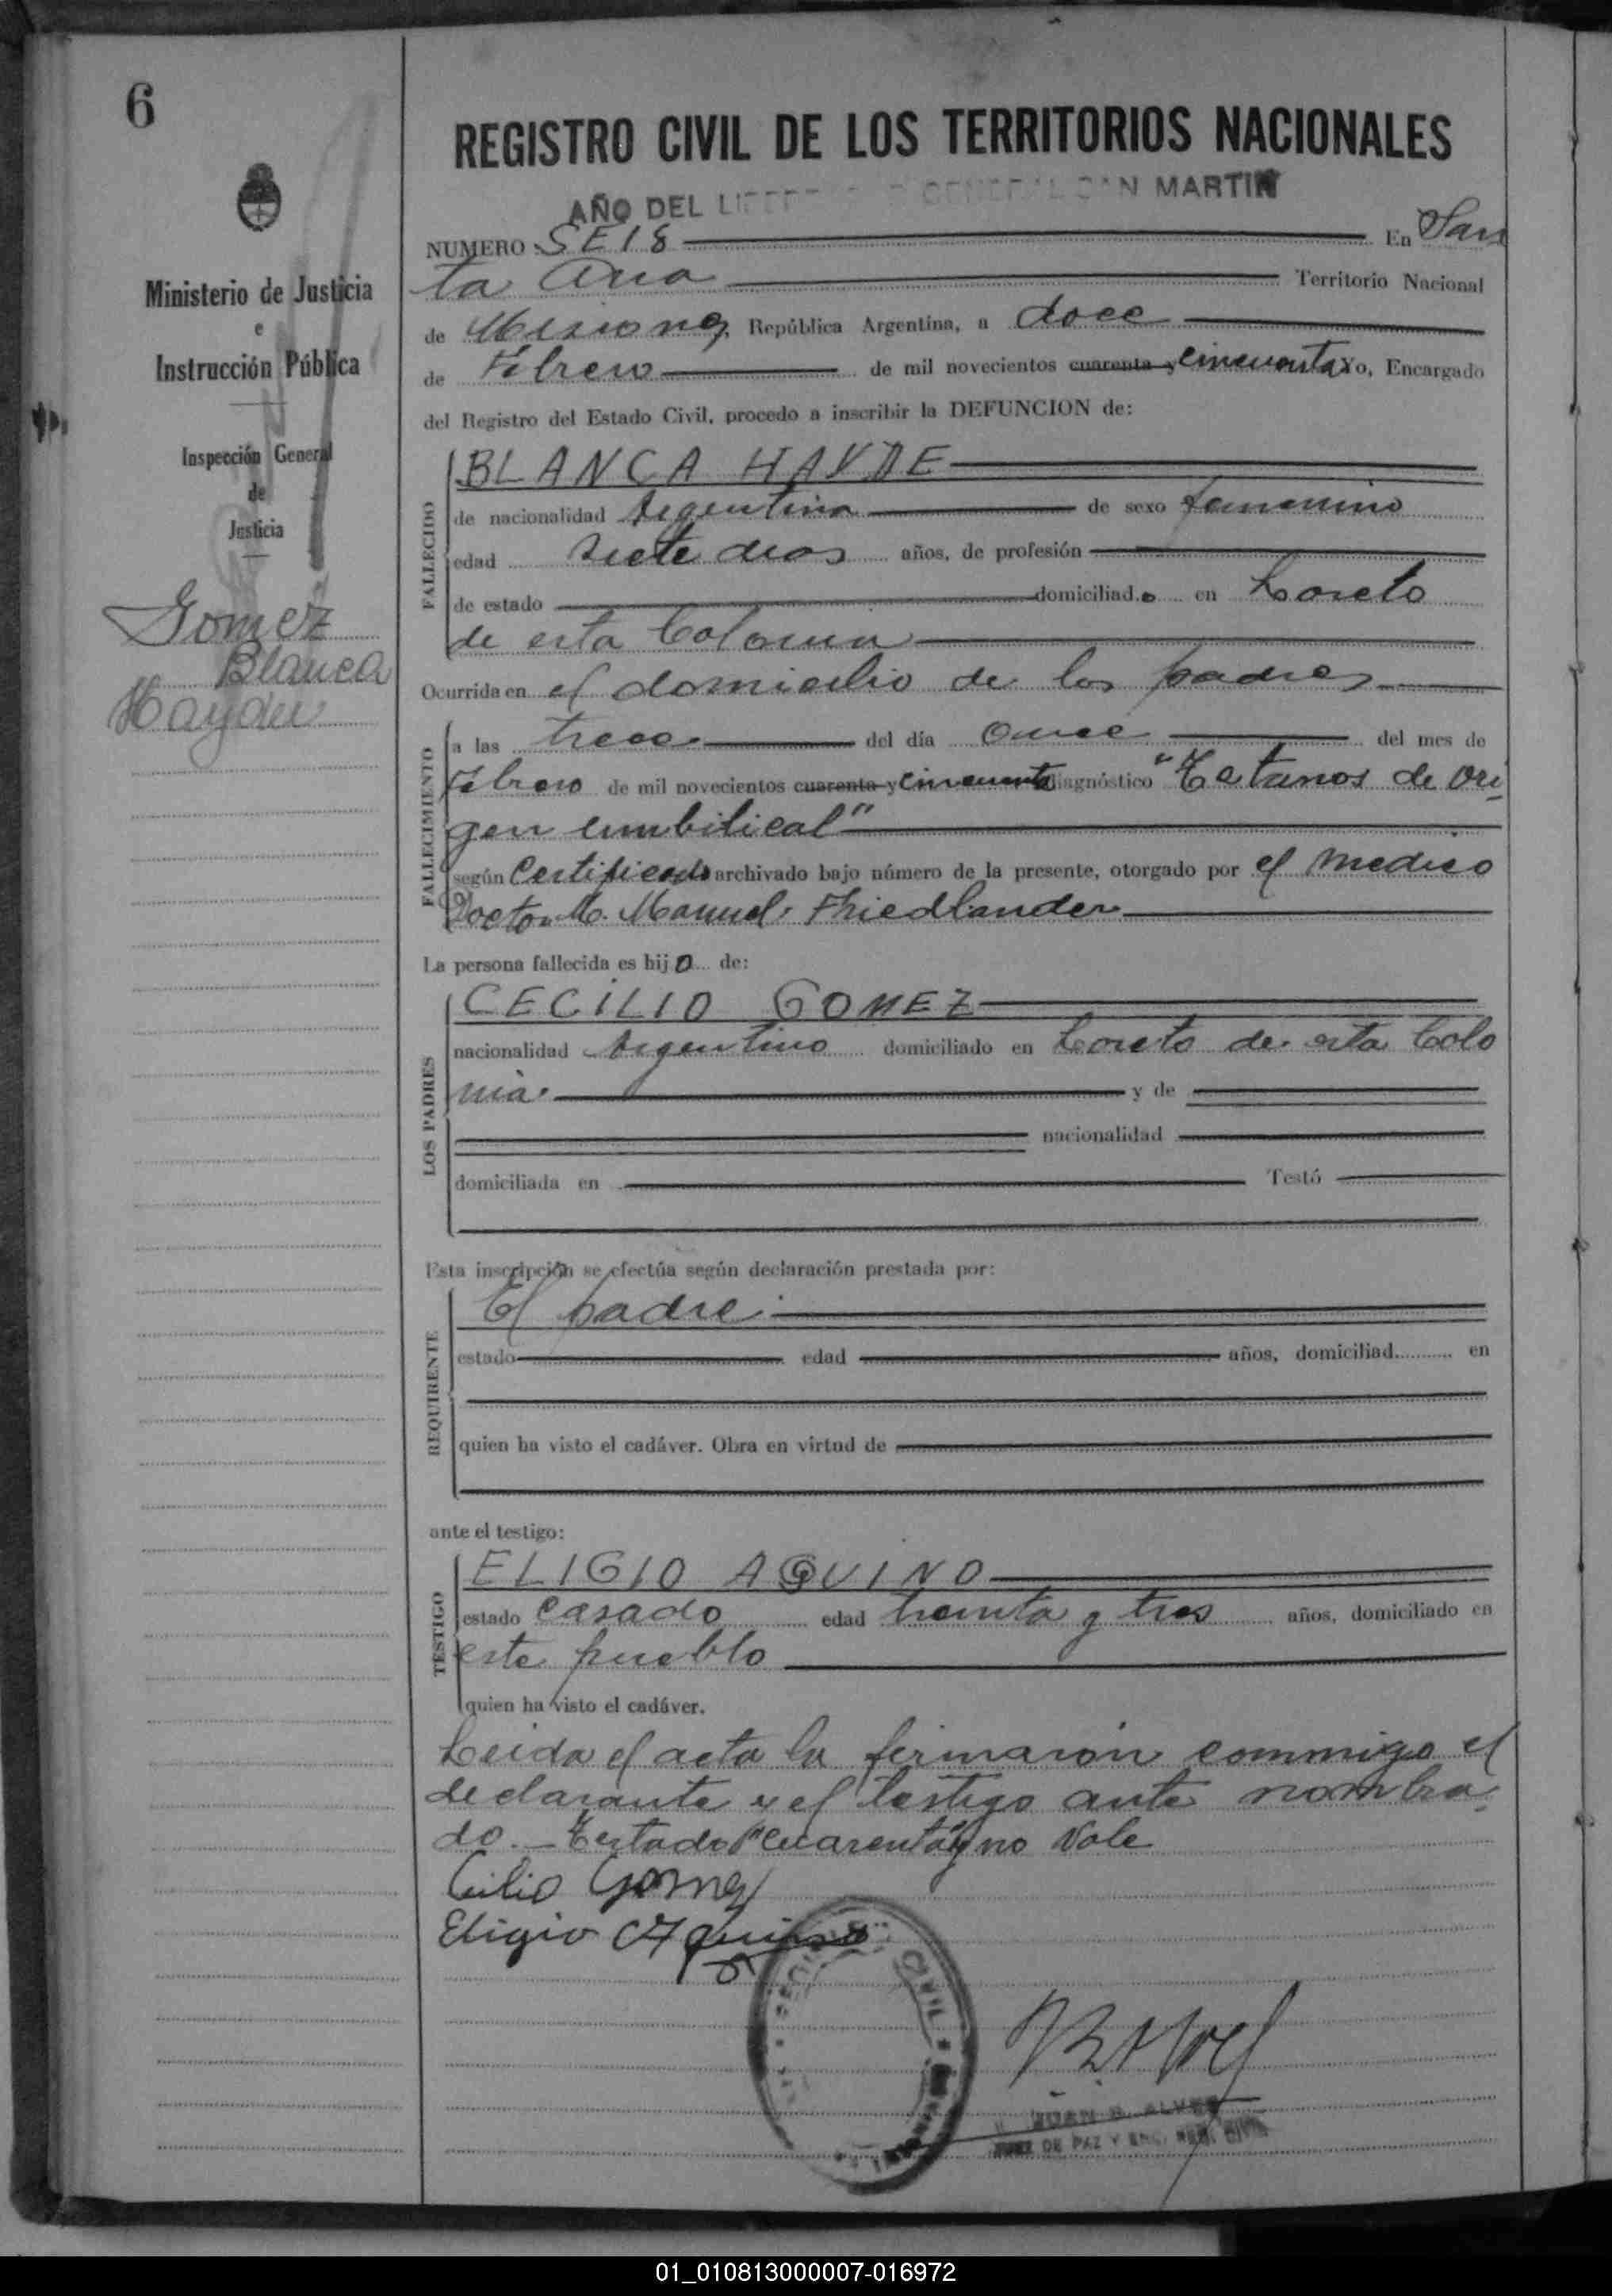 6
Ministerio de Justicia
e
Instrucción Pública
Inspección General
de
Justicia
Gomez
Blanca
Haydee
REGISTRO CIVIL DE LOS TERRITORIOS NACIONALES
AÑO DEL GENERAL SAN MARTIN
NUMERO SEIS En San
ta Ana Territorio Nacional
de Misiones, República Argentina, a doce
de Febrero de mil novecientos cuarenta y cincuenta Yo, Encargado
del Registro del Estado Civil, procedo a inscribir la DEFUNCION de:
FALLECIDO
BLANCA HAYDE
de nacionalidad Argentina de sexo femenino
edad siete dias años, de profesión
de estado domiciliad.a en Loreto
de esta Colonia
Ocurrida en el domicilio de los padres
FALLECIMIENTO
a las trece del día once del mes de
Febrero de mil novecientos cuarenta y cincuenta diagnóstico "Tetanos de ori
gen umbilical"
según Certificado archivado bajo número de la presente, otorgado por el medico
Doctor M. Manuel Friedlander
La persona fallecida es hija de:
LOS PADRES
CECILIO GOMEZ
nacionalidad Argentino domiciliado en Loreto de esta Colo
nia. y de
nacionalidad
domiciliada en Testó
Esta inscripción se efectúa según declaración prestada por:
REQUIRENTE
El padre
estado edad años, domiciliad en
quien ha visto el cadáver. Obra en virtud de
ante el testigo:
TESTIGO
ELIGIO AQUINO
estado casado edad treinta y tres años, domiciliado en
este pueblo
quien ha visto el cadáver.
Leida el acta la firmaron conmigo el
declarante y el testigo ante nombra
do.- Testado "cuarenta y" no vale
Cilio Gomez
Eligio Aquino
CIVIL
JUAN B. ALVES
JUEZ DE PAZ Y ENC. REG. CIVIL
01_010813000007-016972